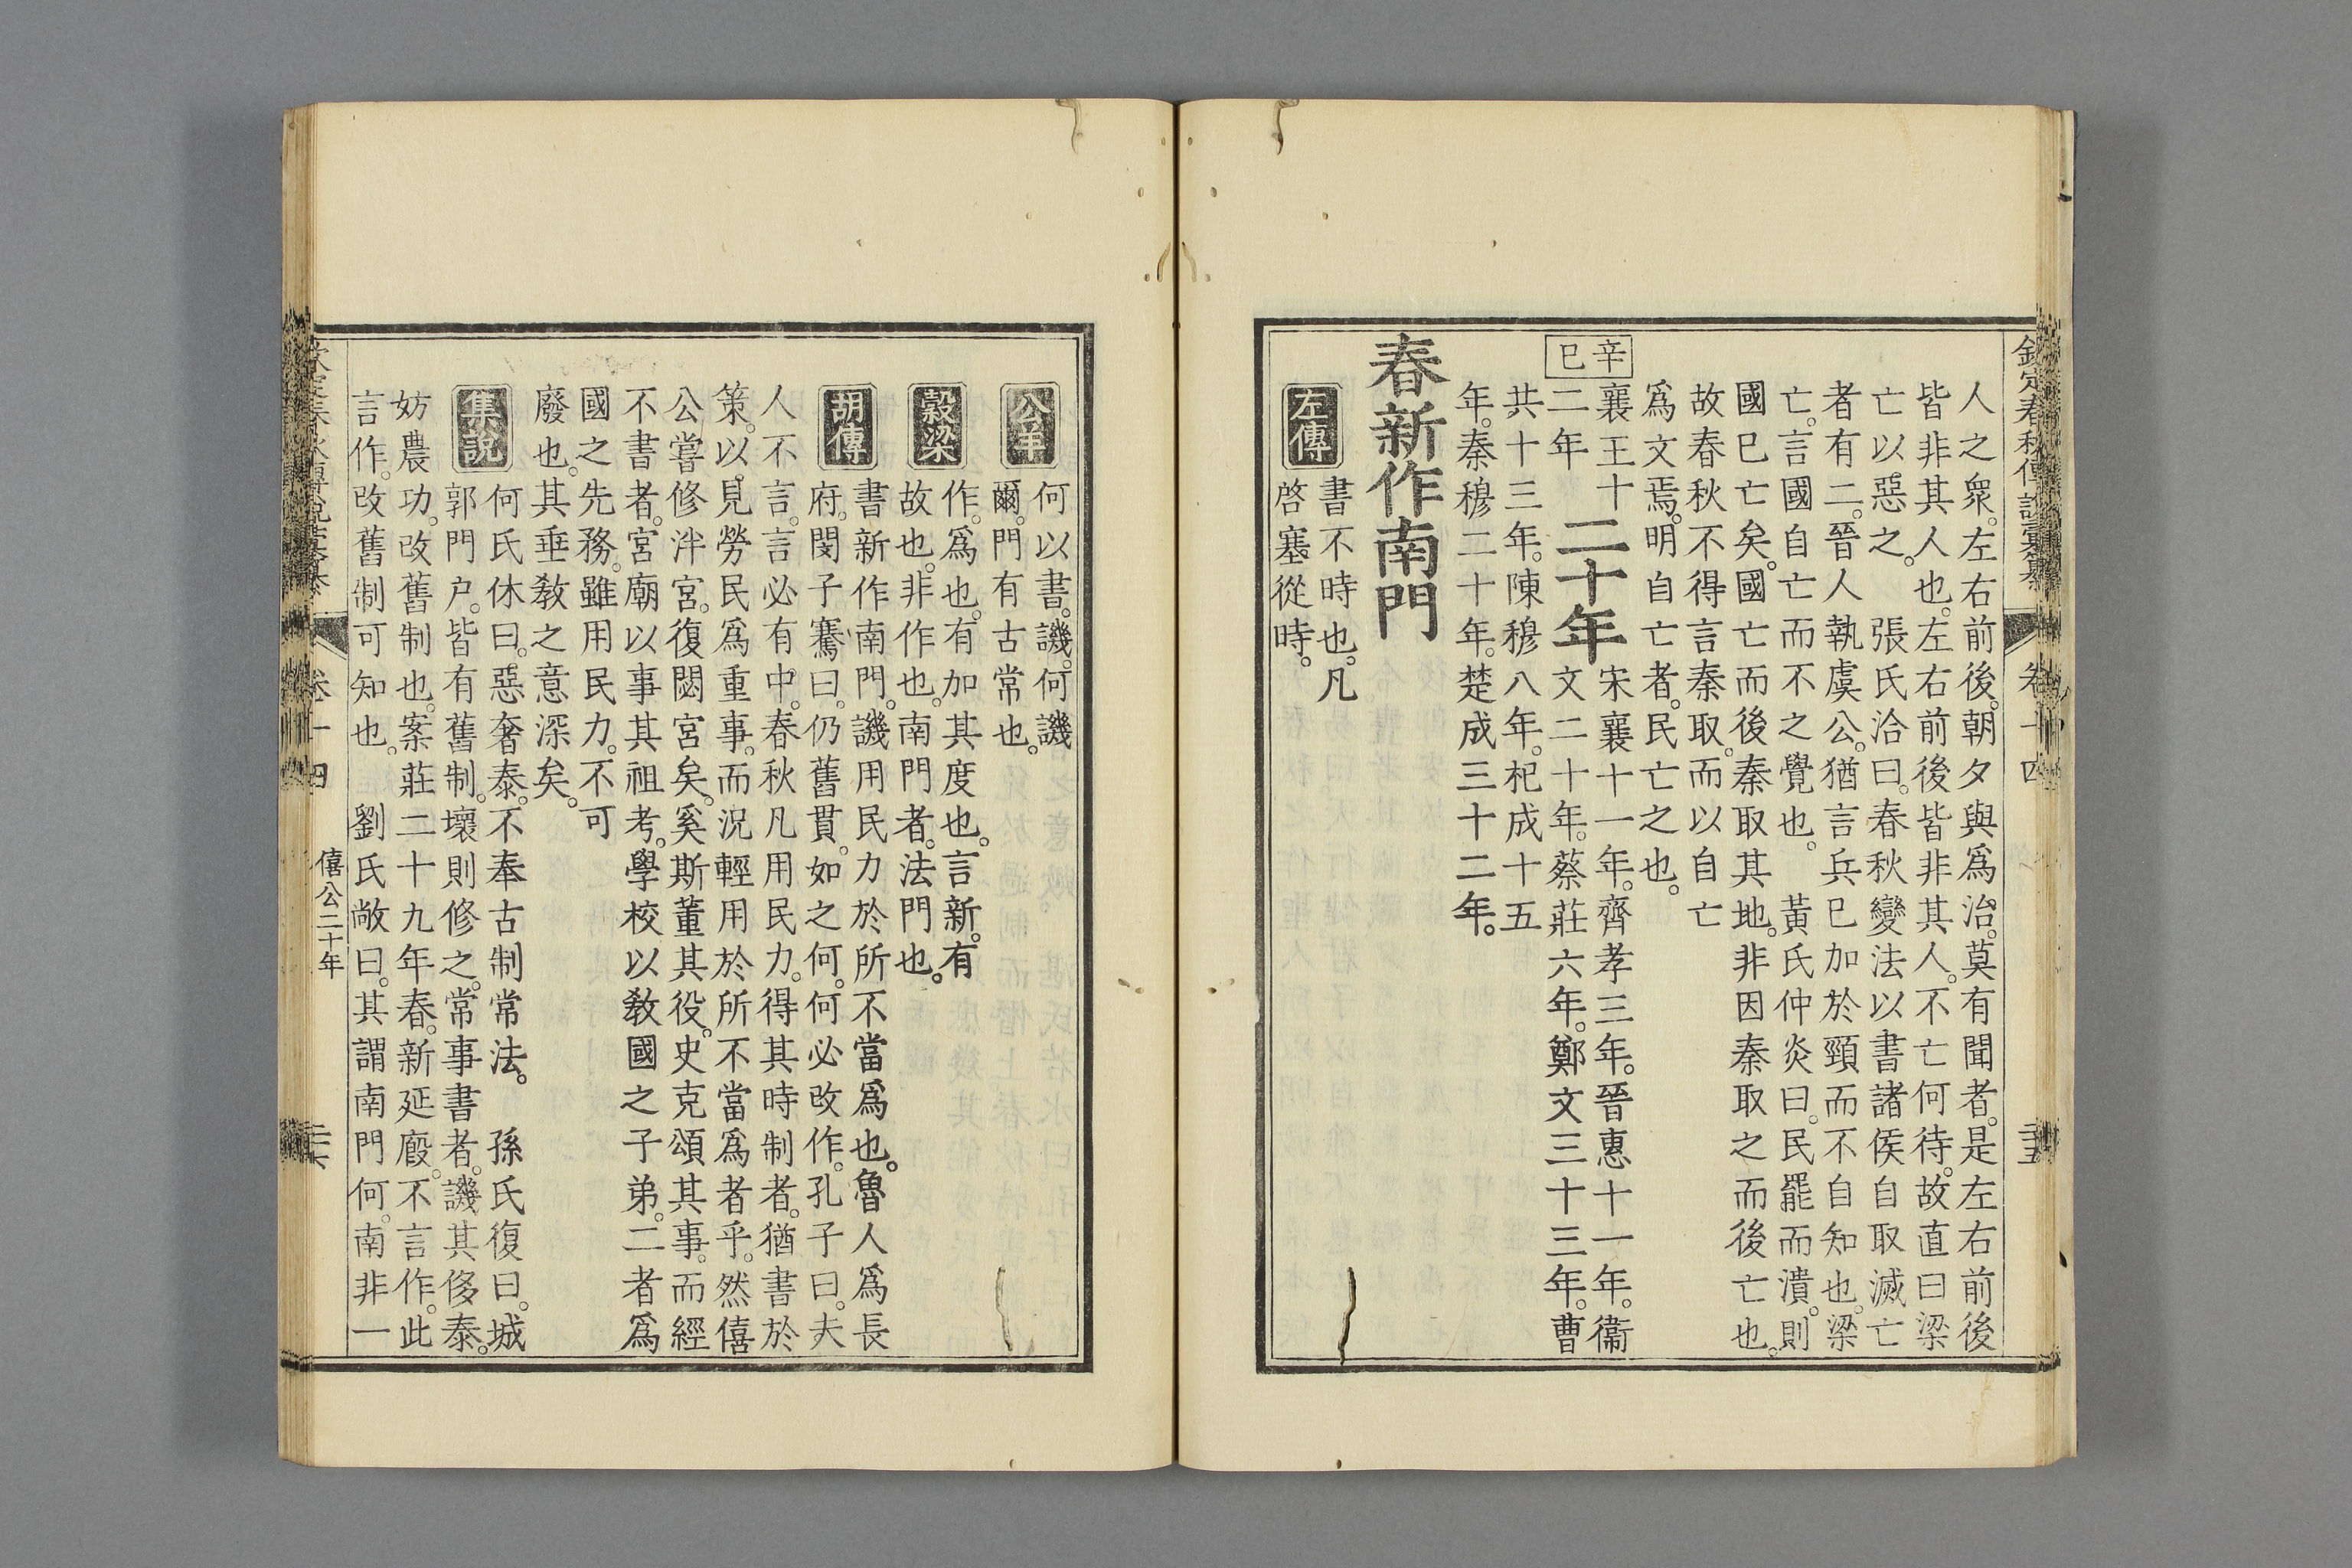 人之衆。左右前後。朝夕與爲治。莫有聞者。是左右前後
皆非其人也。左右前後皆非其人。不亡何待。故直曰梁
亡以惡之。 張氏洽曰。春秋變法以書諸侯自取滅亡
者有二。晉人執虞公。猶言兵巳加於頸而不自知也。梁
亡。言國自亡而不之覺也。 黃氏仲炎曰。民罷而潰。則
國巳亡矣。國亡而後秦取其地。非因秦取之而後亡也。
故春秋不得言秦取。而以自亡
爲文焉。明自亡者。民亡之也。
辛巳
襄王十二年
二十年
宋襄十一年。齊孝三年。晉惠十一年。衞
文二十年。蔡莊六年。鄭文三十三年。曹
共十三年。陳穆八年。杞成十五
年。秦穆二十年。楚成三十二年。
春新作南門
左傳
書不時也。凡
啓塞從時。
公羊
何以書。譏。何譏
爾。門有古常也。
穀梁
作。爲也。有加其度也。言新。有
故也。非作也。南門者。法門也。
胡傳
書新作南門。譏用民力於所不當爲也。魯人爲長
府。閔子騫曰。仍舊貫。如之何。何必改作。孔子曰。夫
人不言。言必有中。春秋凡用民力。得其時制者。猶書於
策。以見勞民爲重事。而況輕用於所不當爲者乎。然僖
公嘗修泮宮。復閟宮矣。奚斯董其役。史克頌其事。而經
不書者。宮廟以事其祖考。學校以敎國之子弟。二者爲
國之先務。雖用民力。不可
廢也。其垂敎之意深矣。
集說
何氏休曰。惡奢泰。不奉古制常法。 孫氏復曰。城
郭門户。皆有舊制。壞則修之。常事書者。譏其侈泰。
妨農功。改舊制也。案莊二十九年春。新延廄。不言作。此
言作。改舊制可知也。 劉氏敞曰。其謂南門何。南非一
卷十四
僖公二十年